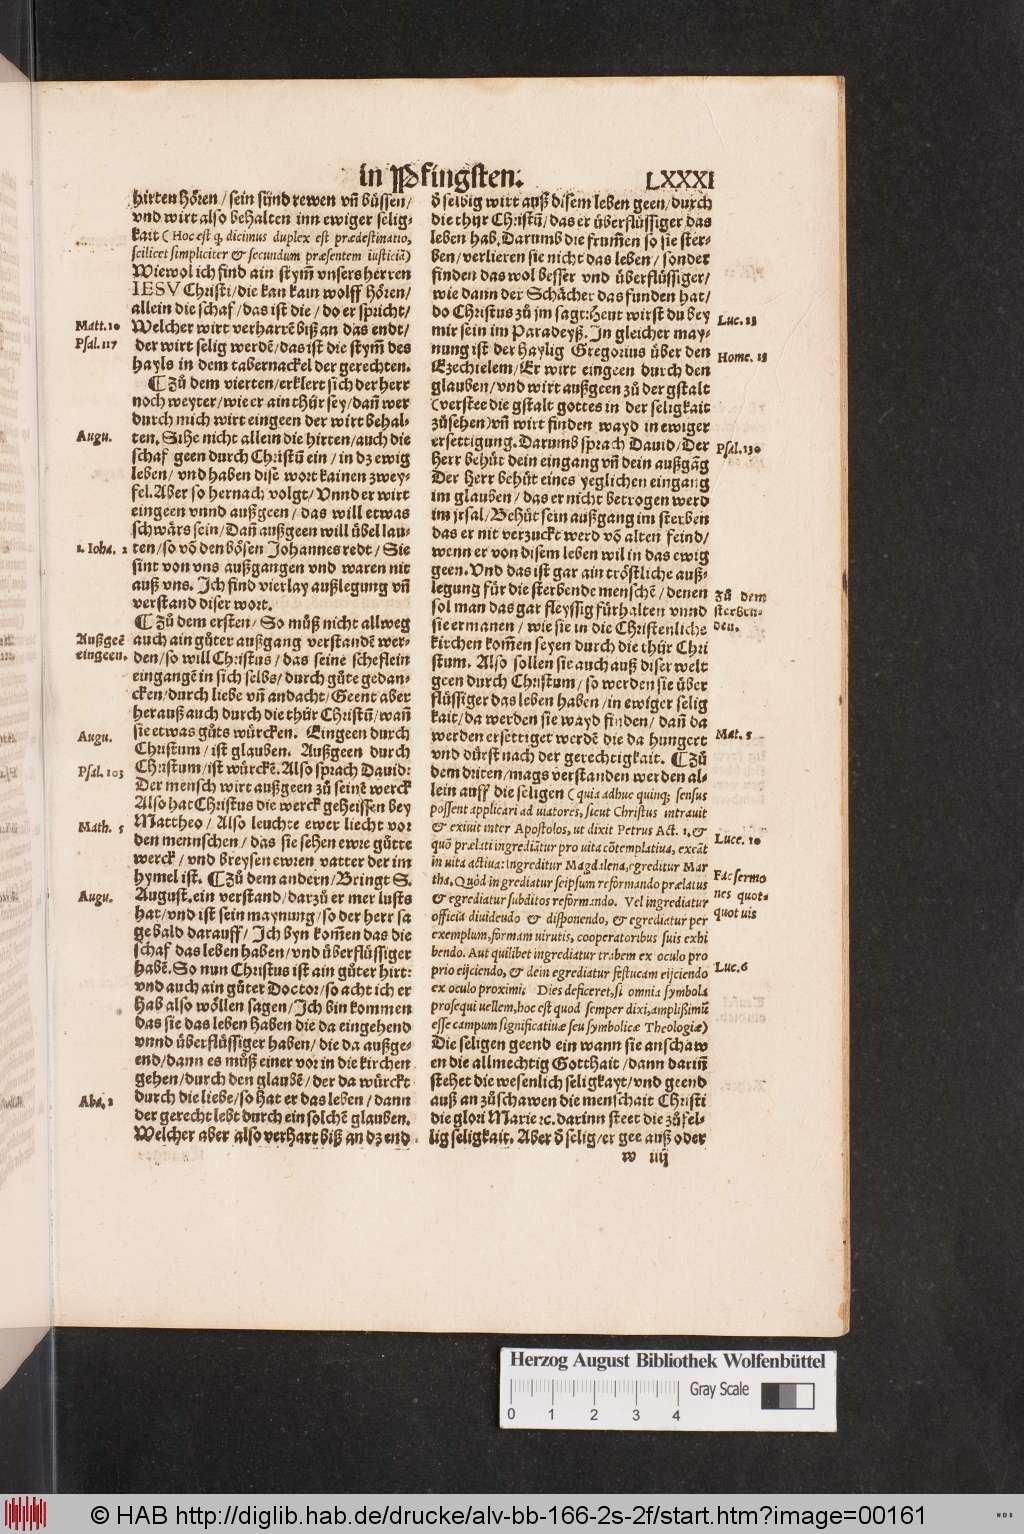 in Pfingsten.
LXXXI
hirten hören / sein sünd rewen vñ büssen /
vnd wirt also behalten inn ewiger selig⸗
kait ( Hoc est q̨ dicimus duplex est prædestinatio,
scilicet simpliciter & secundum præsentem iusticiã)
Wiewol ich find ain stym̃ vnsers herren
IESV Christi / die kan kain wolff hören /
allein die schaf / das ist die / do er spricht /
Matt. 10
Welcher wirt verharrẽ biß an das endt /
Psal. 117
der wirt selig werdẽ / das ist die stym̃ des
hayls in dem tabernackel der gerechten.
¶ Zů dem vierten / erklert sich der herr
noch weyter / wie er ain thür sey / dañ wer
durch mich wirt eingeen der wirt behal⸗
Augu.
ten. Sihe nicht allein die hirten / auch die
schaf geen durch Christũ ein / in dz ewig
leben / vnd haben dise wort kainen zwey⸗
fel. Aber so hernach volgt / Vnnd er wirt
eingeen vnnd außgeen / das will etwas
schwärs sein / Dañ außgeen will übel lau⸗
1. Ioha. 2
ten / so võ den bösen Johannes redt / Sie
sint von vns außgangen vnd waren nit
auß vns. Ich find vierlay außlegung vñ
verstand diser wort.
¶ Zů dem ersten / So můß nicht allweg
Außgeẽ
auch ain gůter außgang verstandẽ wer⸗
eingeen.
den / so will Christus / das seine scheflein
eingangẽ in sich selbs / durch gůte gedan⸗
cken / durch liebe vñ andacht / Geent aber
herauß auch durch die thür Christũ / wañ
sie etwas gůts würcken. Eingeen durch
Augu.
Christum / ist glauben. Außgeen durch
Psal. 103
Christum / ist würckẽ. Also sprach Dauid:
Der mensch wirt außgeen zů seinẽ werck
Also hat Christus die werck geheissen bey
Math. 5
Mattheo / Also leuchte ewer liecht vor
den mennschen / das sie sehen ewre gůtte
werck / vnd breysen ewren vatter der im
hymel ist. ¶ Zů dem andern / Bringt S.
Augu.
August. ein verstand / darzů er mer lusts
hat / vnd ist sein maynung / so der herr sa
ge bald darauff / Ich byn kom̃en das die
schaf das leben haben / vnd überflüssiger
habẽ. So nun Christus ist ain gůter hirt:
vnd auch ain gůter Doctor / so acht ich er
hab also wöllen sagen / Ich bin kommen
das sie das leben haben die da eingehend
vnnd überflüssiger haben / die da außge⸗
end / dann es můß einer vor in die kirchen
gehen / durch den glaubẽ / der da würckt
Aba. 2
durch die liebe / so hat er das leben / dann
der gerecht lebt durch ein solchẽ glauben.
Welcher aber also verhart biß an dz end
d̃ selbig wirt auß disem leben geen / durch
die thür Christũ / das er überflüssiger das
leben hab. Darumb die frum̃en so sie ster⸗
ben / verlieren sie nicht das leben / sonder
finden das wol besser vnd überflüssiger /
wie dann der Schächer das funden hat /
do Christus zů jm sagt: Heut wirst du bey
Luc. 23
mir sein im Paradeyß. In gleicher may⸗
nung ist der haylig Gregorius über den
Home. 13
Ezechielem / Er wirt eingeen durch den
glauben / vnd wirt außgeen zů der gstalt
(verstee die gstalt gottes in der seligkait
zůsehen) vñ wirt finden wayd in ewiger
ersettigung. Darumb sprach Dauid / Der
Psal. 130
Herr behüt dein eingang vñ dein außgãg
Der Herr behüt eines yeglichen eingang
im glauben / das er nicht betrogen werd
im jrsal / Behüt sein außgang im sterben
das er nit verzuckt werd võ alten feind /
wenn er von disem leben wil in das ewig
geen. Vnd das ist gar ain tröstliche auß⸗
legung für die sterbende menschẽ / denen
Zů dem
sol man das gar fleyssig fürhalten vnnd
sterben⸗
sie ermanen / wie sie in die Christenliche
den.
kirchen kom̃en seyen durch die thür Chri
stum. Also sollen sie auch auß diser welt
geen durch Christum / so werden sie über
flüssiger das leben haben / in ewiger selig
kait / da werden sie wayd finden / dañ da
Mat. 5
werden ersettiget werdẽ die da hungert
vnd dürst nach der gerechtigkait. ¶ Zů
dem driten / mags verstanden werden al⸗
lein auff die seligen ( quia adhuc quinq; sensus
possent applicari ad uiatores, sicut Christus intrauit
& exiuit inter Apostolos, ut dixit Petrus Act. 1, &
Luce. 10
quõ prælati ingrediãtur pro uita cõtemplatiua, exeãt
in uita actiua: Ingreditur Magdalena, egreditur Mar
Fac sermo
tha. Quòd ingrediatur seipsum reformando prælatus
nes quot⸗
& egrediatur subditos reformando. Vel ingrediatur
quot uis
officia diuidendo & disponendo, & egrediatur per
exemplum, formam uirutis, cooperatoribus suis exhi
bendo. Aut quilibet ingrediatur trabem ex oculo pro
Luc. 6
prio eijciendo, & dein egrediatur festucam eijciendo
ex oculo proximi. Dies deficeret, si omnia symbola
prosequi uellem, hoc est quod semper dixi, amplißimũ
esse campum significatiuæ seu symbolicæ Theologiæ)
Die seligen geend ein wann sie anschaw
en die allmechtig Gotthait / dann dariñ
stehet die wesenlich seligkayt / vnd geend
auß an zůschawen die menschait Christi
die glori Marie ꝛc. darinn steet die zůfel⸗
lig seligkait. Aber d̃ selig / er gee auß oder
w iiij
Herzog August Bibliothek Wolfenbüttel
Gray Scale
0 1 2 3 4
© HAB http://diglib.hab.de/drucke/alv-bb-166-2s-2f/start.htm?image=00161